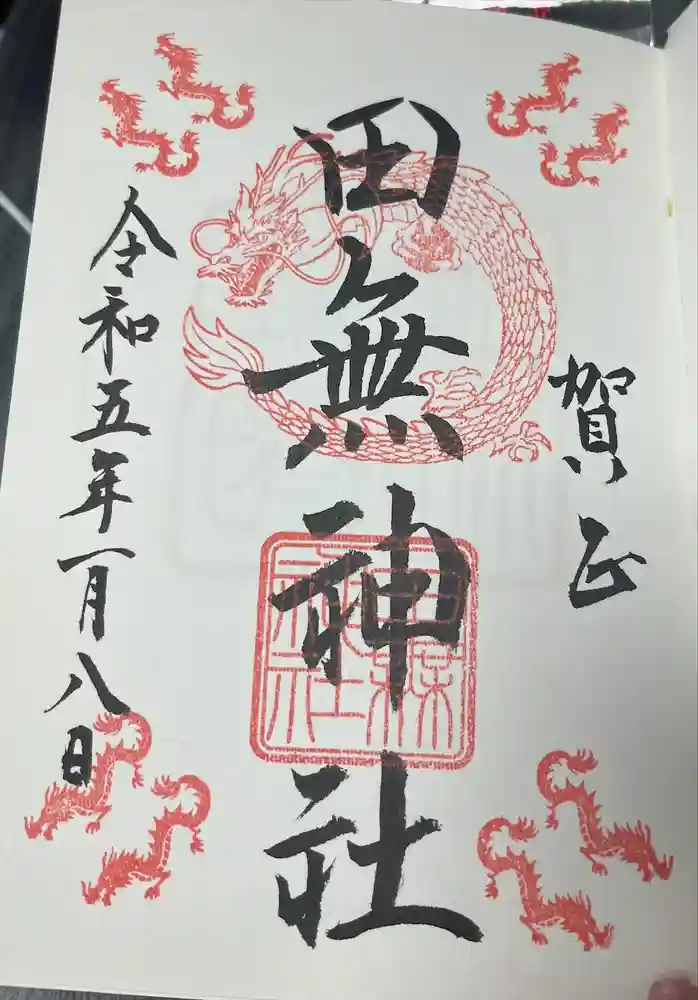 賀正
田無神社
令和五年一月八日
田無神社